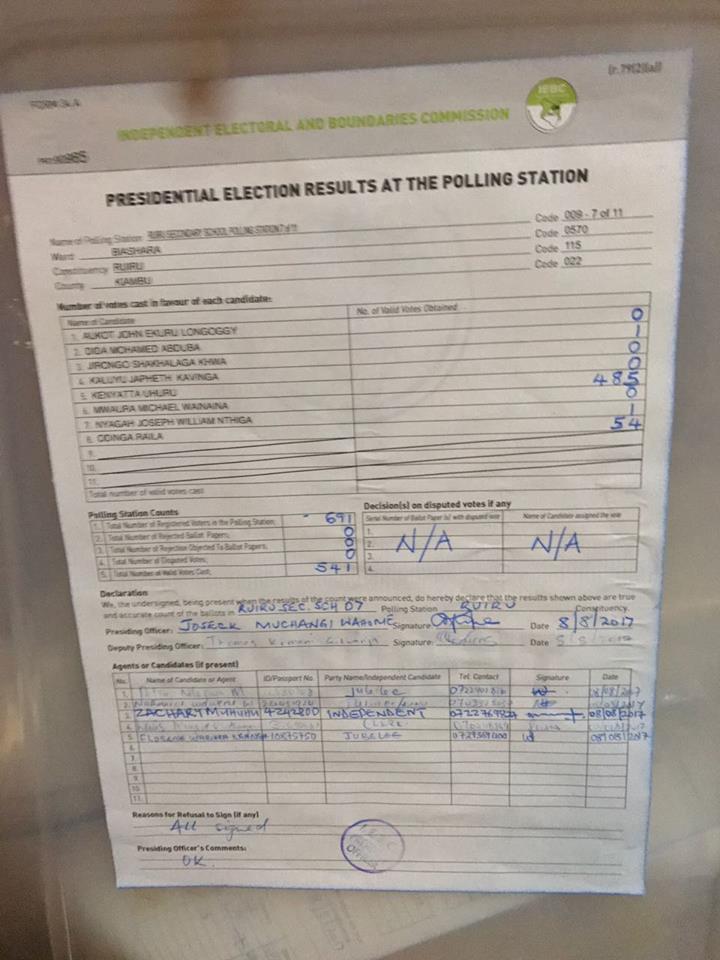 FORM 34A
(r.79(2)(a))
IEBC
INDEPENDENT ELECTORAL AND BOUNDARIES COMMISSION
PRESIDENTIAL ELECTION RESULTS AT THE POLLING STATION
Name of Polling Station RUIRU SECONDARY SCHOOL POLLING STATION 7 of 11 Code 009 - 7 of 11
Ward BIASHARA Code 0570
Constituency RUIRU Code 115
County KIAMBU Code 022
Number of votes cast in favour of each candidate:
Name of Candidate No. of Valid Votes Obtained
1. AUKOT JOHN EKURU LONGOGGY 0
2. DIDA MOHAMED ABDUBA 1
3. JIRONGO SHAKHALAGA KHWA 0
4. KALUYU JAPHETH KAVINGA 0
5. KENYATTA UHURU 485
6. MWAURA MICHAEL WAINAINA 0
7. NYAGAH JOSEPH WILLIAM NTHIGA 1
8. ODINGA RAILA 54
9.
10.
11.
Total number of valid votes cast
Polling Station Counts
1. Total Number of Registered Voters in the Polling Station 691
2. Total Number of Rejected Ballot Papers 0
3. Total Number of Rejection Objected To Ballot Papers 0
4. Total Number of Disputed Votes 0
5. Total Number of Valid Votes Cast 541
Decision(s) on disputed votes if any
Serial Number of Ballot Paper (s) with disputed vote Name of Candidate assigned the vote
1.
2.
3.
4.
N/A N/A
Declaration
We, the undersigned, being present when the results of the count were announced, do hereby declare that the results shown above are true
and accurate count of the ballots in RUIRU SEC. SCH 07 Polling Station RUIRU Constituency.
Presiding Officer: JOSECK MUCHANGI Signature Date 8/8/2017
Deputy Presiding Officer: Signature: Date 8/8/2017
Agents or Candidates (if present)
No. Name of Candidate or Agent ID/Passport No. Party Name/Independent Candidate Tel. Contact Signature Date
1. Jubilee 08/08/2017
2.
3 ZACHARY MUHUHU 4242800 INDEPENDENT 08/08/2017
4
5 10875750 JUBILEE
6.
7.
8.
9.
10.
11.
Reasons for Refusal to Sign (if any)
All signed
Presiding Officer's Comments:
OK